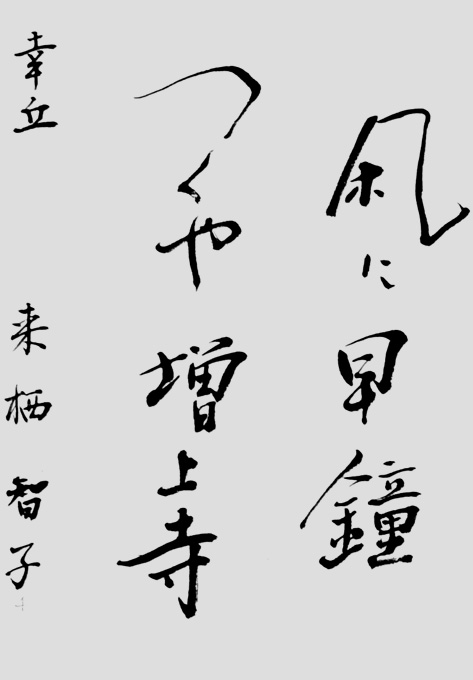 凩に早鐘
つくや増上寺
幸丘 来栖智子